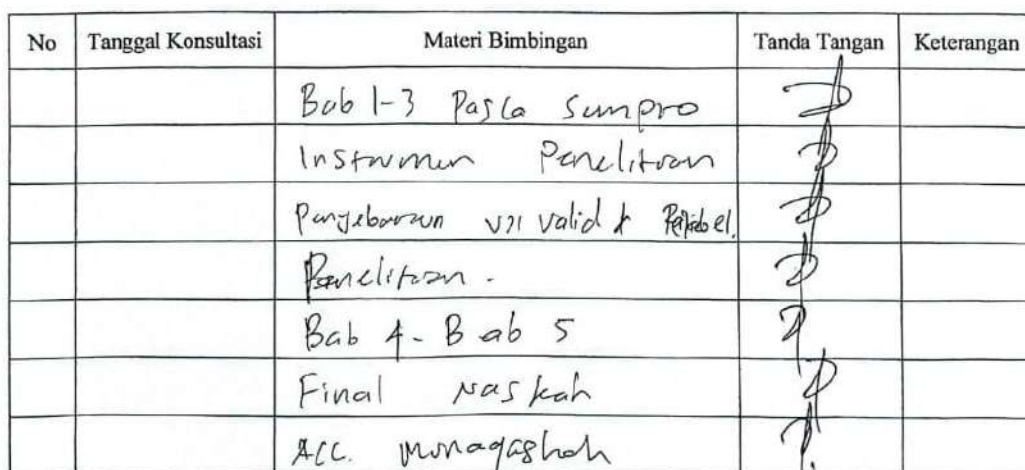 No Tanggal Konsultasi Materi Bimbingan Tanda Tangan Keterangan
Bab 1-3 Pasca Sempro
Instrumen Penelitian
Penyebaran uji valid & Reliabel.
Penelitian.
Bab 4 - Bab 5
Final Naskah
ACC. Munaqashah